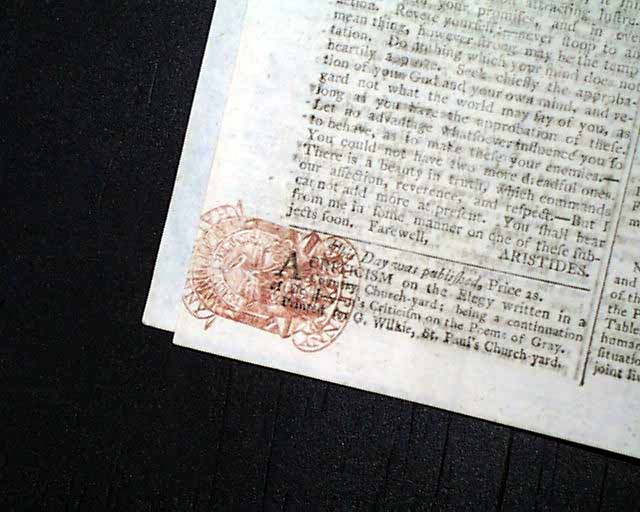 your promises, and in eve
mition. Revere yourself:—never stoop to a
mean thing, however strong may be the temp
tation. Do nothing which your mind does not
heartily approve. Seek chiefly the approba-
tion of your God and your own mind, and re-
gard not what the world may say of you, as
long as you have the approbation of these.
Let no advantage whatsoever influence you so
to behave, as to make these your enemies.—
You could not have two more dreadful ones.
There is a beauty in truth, which commands
our affection, reverence, and respect.—But I
cannot add more at present. You shall hear
from me in some manner on one of these sub-
jects soon. Farewell,
ARISTIDES.
Day was published, Price 2s.
A CRITICISM on the Elegy written in a
Church-yard; being a continuation
's Criticism on the Poems of Gray.
Printed G. Wilkie, St. Paul's Church-yard.
and
of th
the
Tabl
human
situati
joint